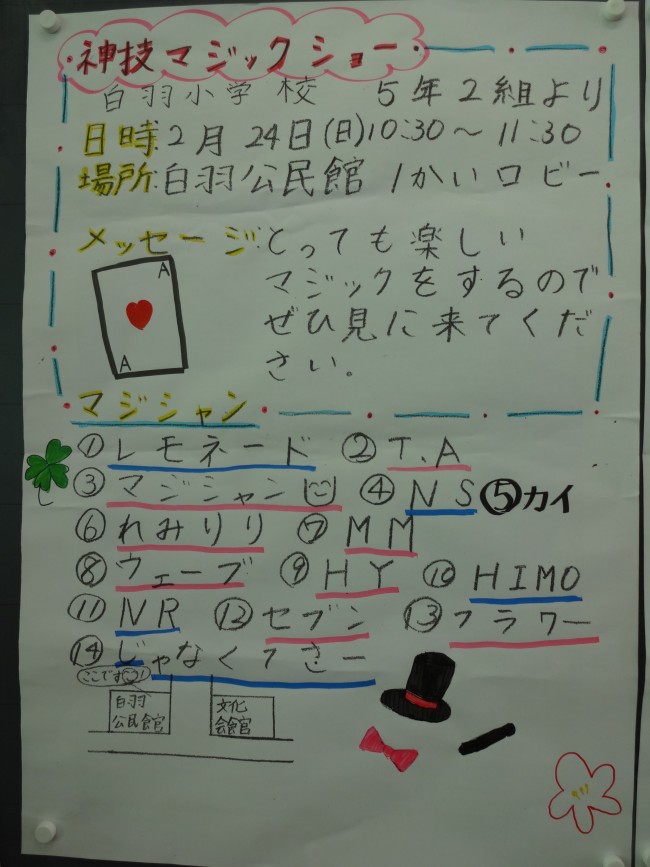 神技マジックショー
白羽小学校 5年2組より
日時 2月24日(日)10:30〜11:30
場所 白羽公民館 1かいロビー
メッセージ とっても楽しい
マジックをするので
ぜひ見に来てくだ
さい。
A
A
マジシャン
①レモネード ②T.A
③マジシャン ④NS ⑤カイ
⑥れみりり ⑦MM
⑧ウェーブ ⑨HY ⑩HIMO
⑪NR ⑫セブン ⑬フラワー
⑭じゃなくてさー
ここです!
白羽 公民館
文化 会館